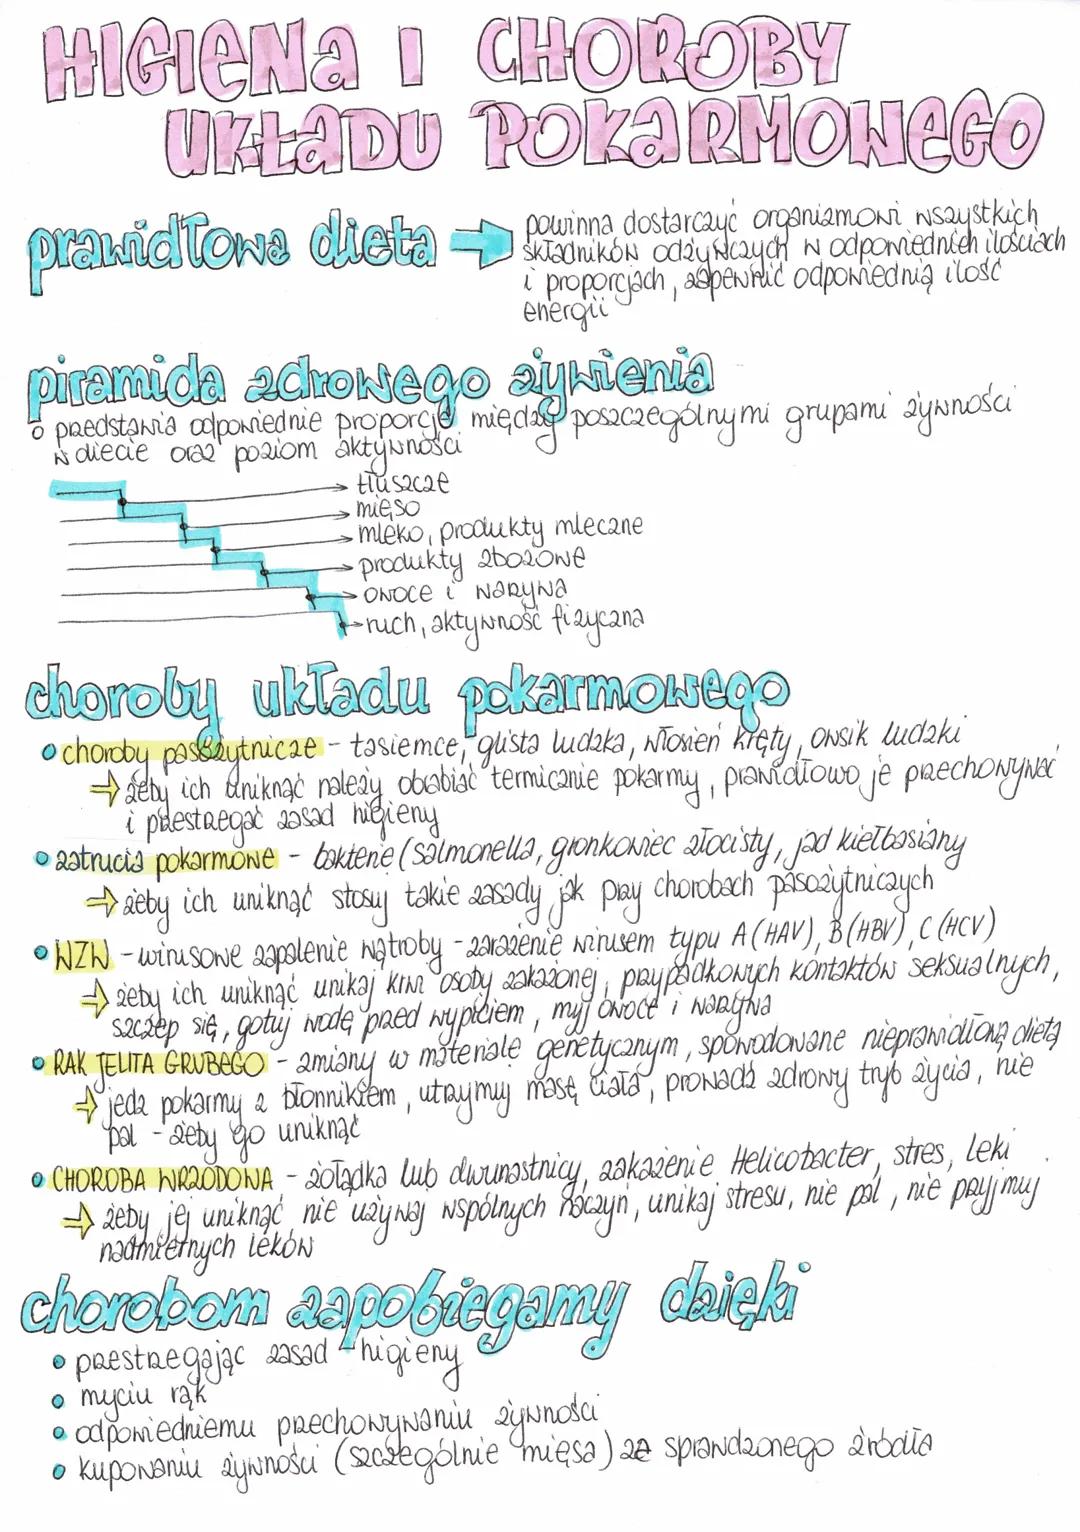 HIGIENA I CHOROBY
UKŁADU POKARMOWEGO
prawidłowa dieta → powinna dostarczyć organizmowi wszystkich
składników odżywczych w odpowiednich ilościach
i proporcjach, zapewnić odpowiednią ilość
energii
piramida zdrowego żywienia
przedstawia odpowiednie proporcje między poszczególnymi grupami żywności
w diecie oraz poziom aktywności
tłuszcze
mięso
mleko, produkty mleczne
produkty zbożowe
owoce i warzywa
ruch, aktywność fizyczna
choroby układu pokarmowego
choroby pasożytnicze - tasiemce, glista ludzka, włosień kręty, owsik ludzki
⇒ żeby ich uniknąć należy obrabiać termicznie pokarmy, prawidłowo je przechowywać
i przestrzegać zasad higieny
zatrucia pokarmowe - bakterie (Salmonella, gronkowiec złocisty, jad kiełbasiany
⇒ żeby ich uniknąć stosuj takie zasady jak przy chorobach pasożytniczych
WZW - wirusowe zapalenie wątroby - zarażenie wirusem typu A (HAV), B (HBV), C (HCV)
⇒ żeby ich uniknąć unikaj krwi osoby zakażonej, przypadkowych kontaktów seksualnych,
szczep się, gotuj wodę przed wypiciem, myj owoce i warzywa
RAK JELITA GRUBEGO - zmiany w materiale genetycznym, spowodowane nieprawidłową dietą
⇒ jedz pokarmy z błonnikiem, utrzymuj masę ciała, prowadź zdrowy tryb życia, nie
pal - żeby go uniknąć
CHOROBA WRZODOWA - żołądka lub dwunastnicy, zakażenie Helicobacter, stres, leki
⇒ żeby jej uniknąć nie używaj wspólnych naczyń, unikaj stresu, nie pal, nie przyjmuj
nadmiernych leków
chorobom zapobiegamy dzięki
przestrzegając zasad higieny
myciu rąk
odpowiedniemu przechowywaniu żywności
kupowaniu żywności (szczególnie mięsa) ze sprawdzonego źródła